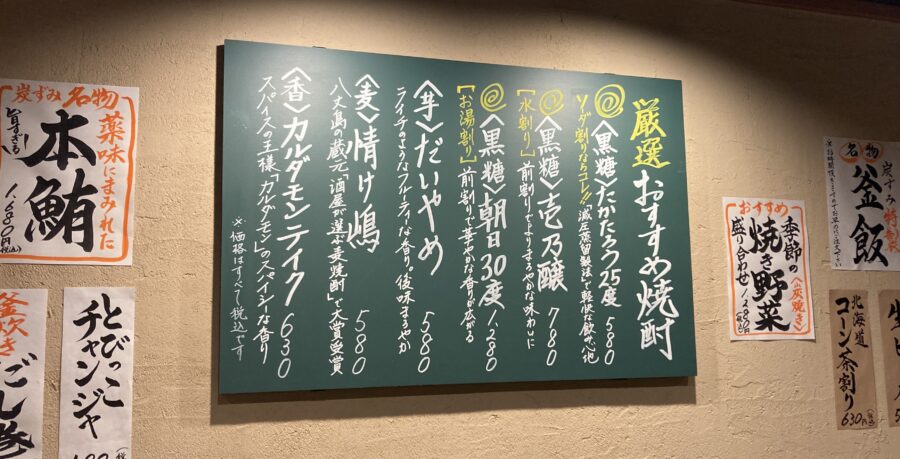 厳選おすすめ焼酎
〈黒糖〉たかたろう25度 580
ソーダ割りならコレ!!「減圧蒸留製法」で軽快な飲み心地
〈黒糖〉壱乃醸 780
【水割り】前割りでよりまろやかな味わいに
〈黒糖〉朝日30度 1280
【お湯割り】前割りで華やかな香りが広がる
〈芋〉だいやめ 580
ライチのようなフルーティな香り。後味まろやか
〈麦〉情け嶋 580
八丈島の蔵元「酒屋が選ぶ麦焼酎」で大賞受賞
〈香〉カルダモンテイク 630
スパイスの王様「カルダモン」のスパイシーな香り
※価格はすべて税込です
炭ずみ名物
薬味にまみれた
本鮪
旨すぎる
1,680円(税込)
とびっこ
チャンジャ
釜炊き
おすすめ
季節の
焼き野菜
〈炭焼き〉
盛り合わせ
1,280円(税込)
名物
炭ずみ特製
釜飯
北海道
コーン茶割り
630円(税込)